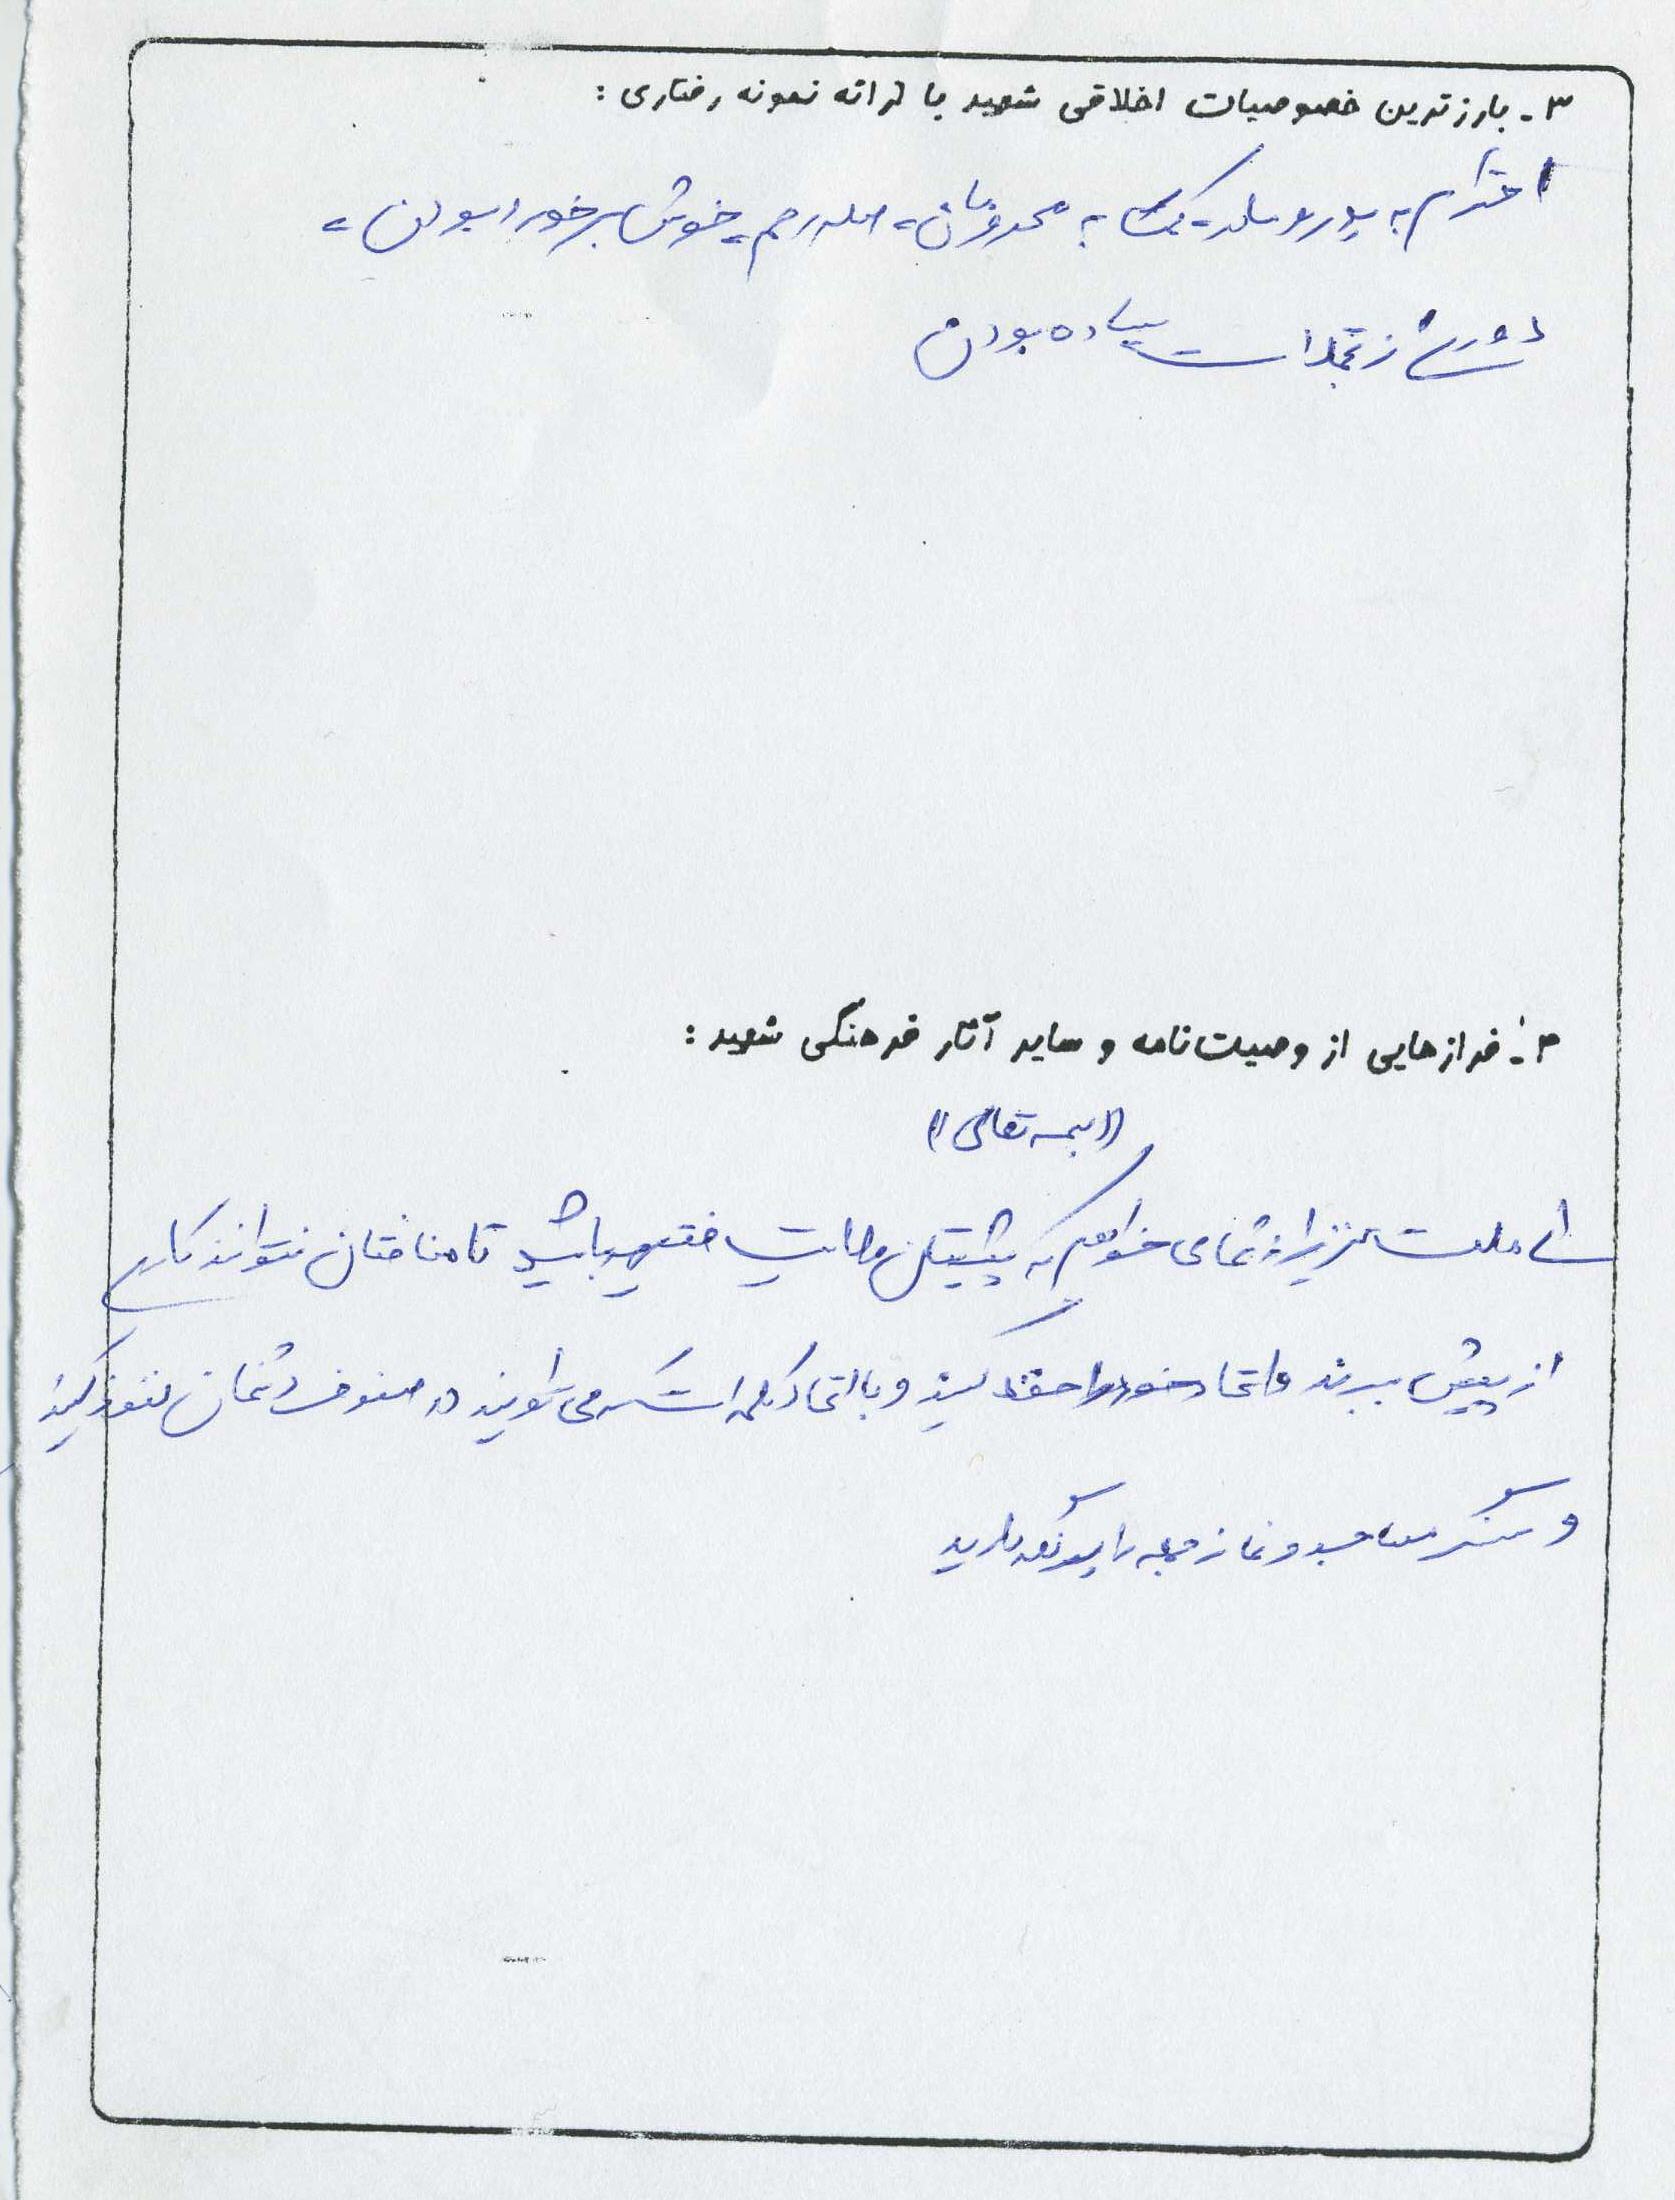 ۳ـ بارزترین خصوصیات اخلاقی شهید با ارائه نمونه رفتاری :
احترام به پدر و مادر ـ کمک به محرومان ، صله رحم ، خوش برخورد بودن ،
دوری از تجملات ساده بودن
۴ـ فرازهایی از وصیت‌نامه و سایر آثار فرهنگی شهید :
((بسمه تعالی))
ای ملت عزیز از شما می خواهم که پشتیبان ولایت فقیه باشید تا منافقان نتوانند کاری
از پیش ببرند و اتحاد خود را حفظ کنید و با اتحاد کلمه است که می توانید در صفوف دشمنان نفوذ کنید
و سنگر مساجد و نماز جمعه را پر نگه دارید